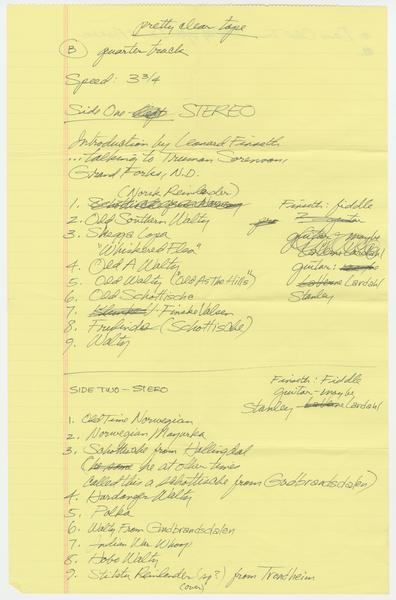 pretty clear tape
B quarter track
Speed: 3 3/4
Side One - STEREO
Introduction by Leonard Finseth
... talking to Truman Sorenson,
Grand Forks, N.D.
(Norsk Reinlender)
1.
2. Old Southern Waltz
3. Skogs Losa
"Whiskered Flea"
4. Old A Waltz
5. Old Waltz ("Old As The Hills")
6. Old Schottische
7. Finske Valsen
8. Frifinder (Schottische)
9. Waltz
Finseth: fiddle
guitar - maybe
guitar:
Lardahl
Stanley
SIDE TWO - STERO
Finseth: Fiddle
guitar - maybe
Stanley Lardahl
1. Old Time Norwegian
2. Norwegian Mazurka
3. Schottische from Hallingdal
( he at other times
called this a schottische from Gudbrandsdalen)
4. Hardanger Waltz
5. Polka
6. Waltz From Gudbrandsdalen
7. Indian War Whoop
8. Hobo Waltz
9. Reinlender (sp?) from Trondheim
(over)